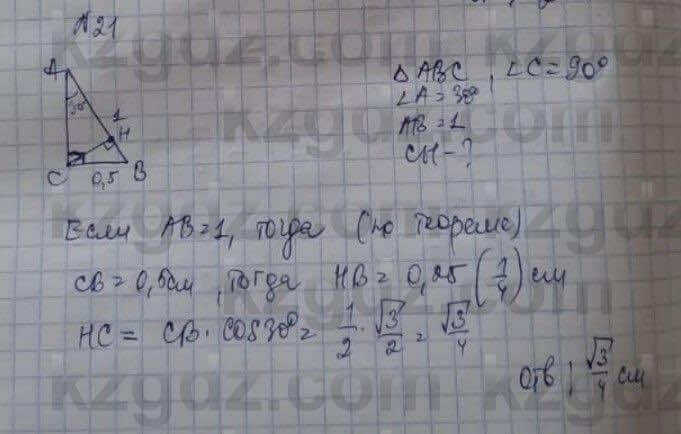 №21
A
30°
1
H
C 0,5 B
Δ ABC, ∠C = 90°
∠A = 30°
AB = 1
CH - ?
Если AB = 1, тогда (по теореме)
CB = 0,5см, тогда HB = 0,25 (1/4) см
HC = CB · cos30° = 1/2 · √3/2 = √3/4
Отв: √3/4 см
kzgdz.com